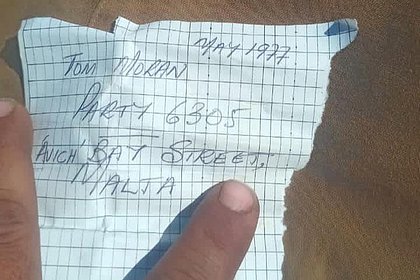 MAY 1977
TOM MORAN
PARTY 6305
'AVICH' BAY STREET,
MALTA